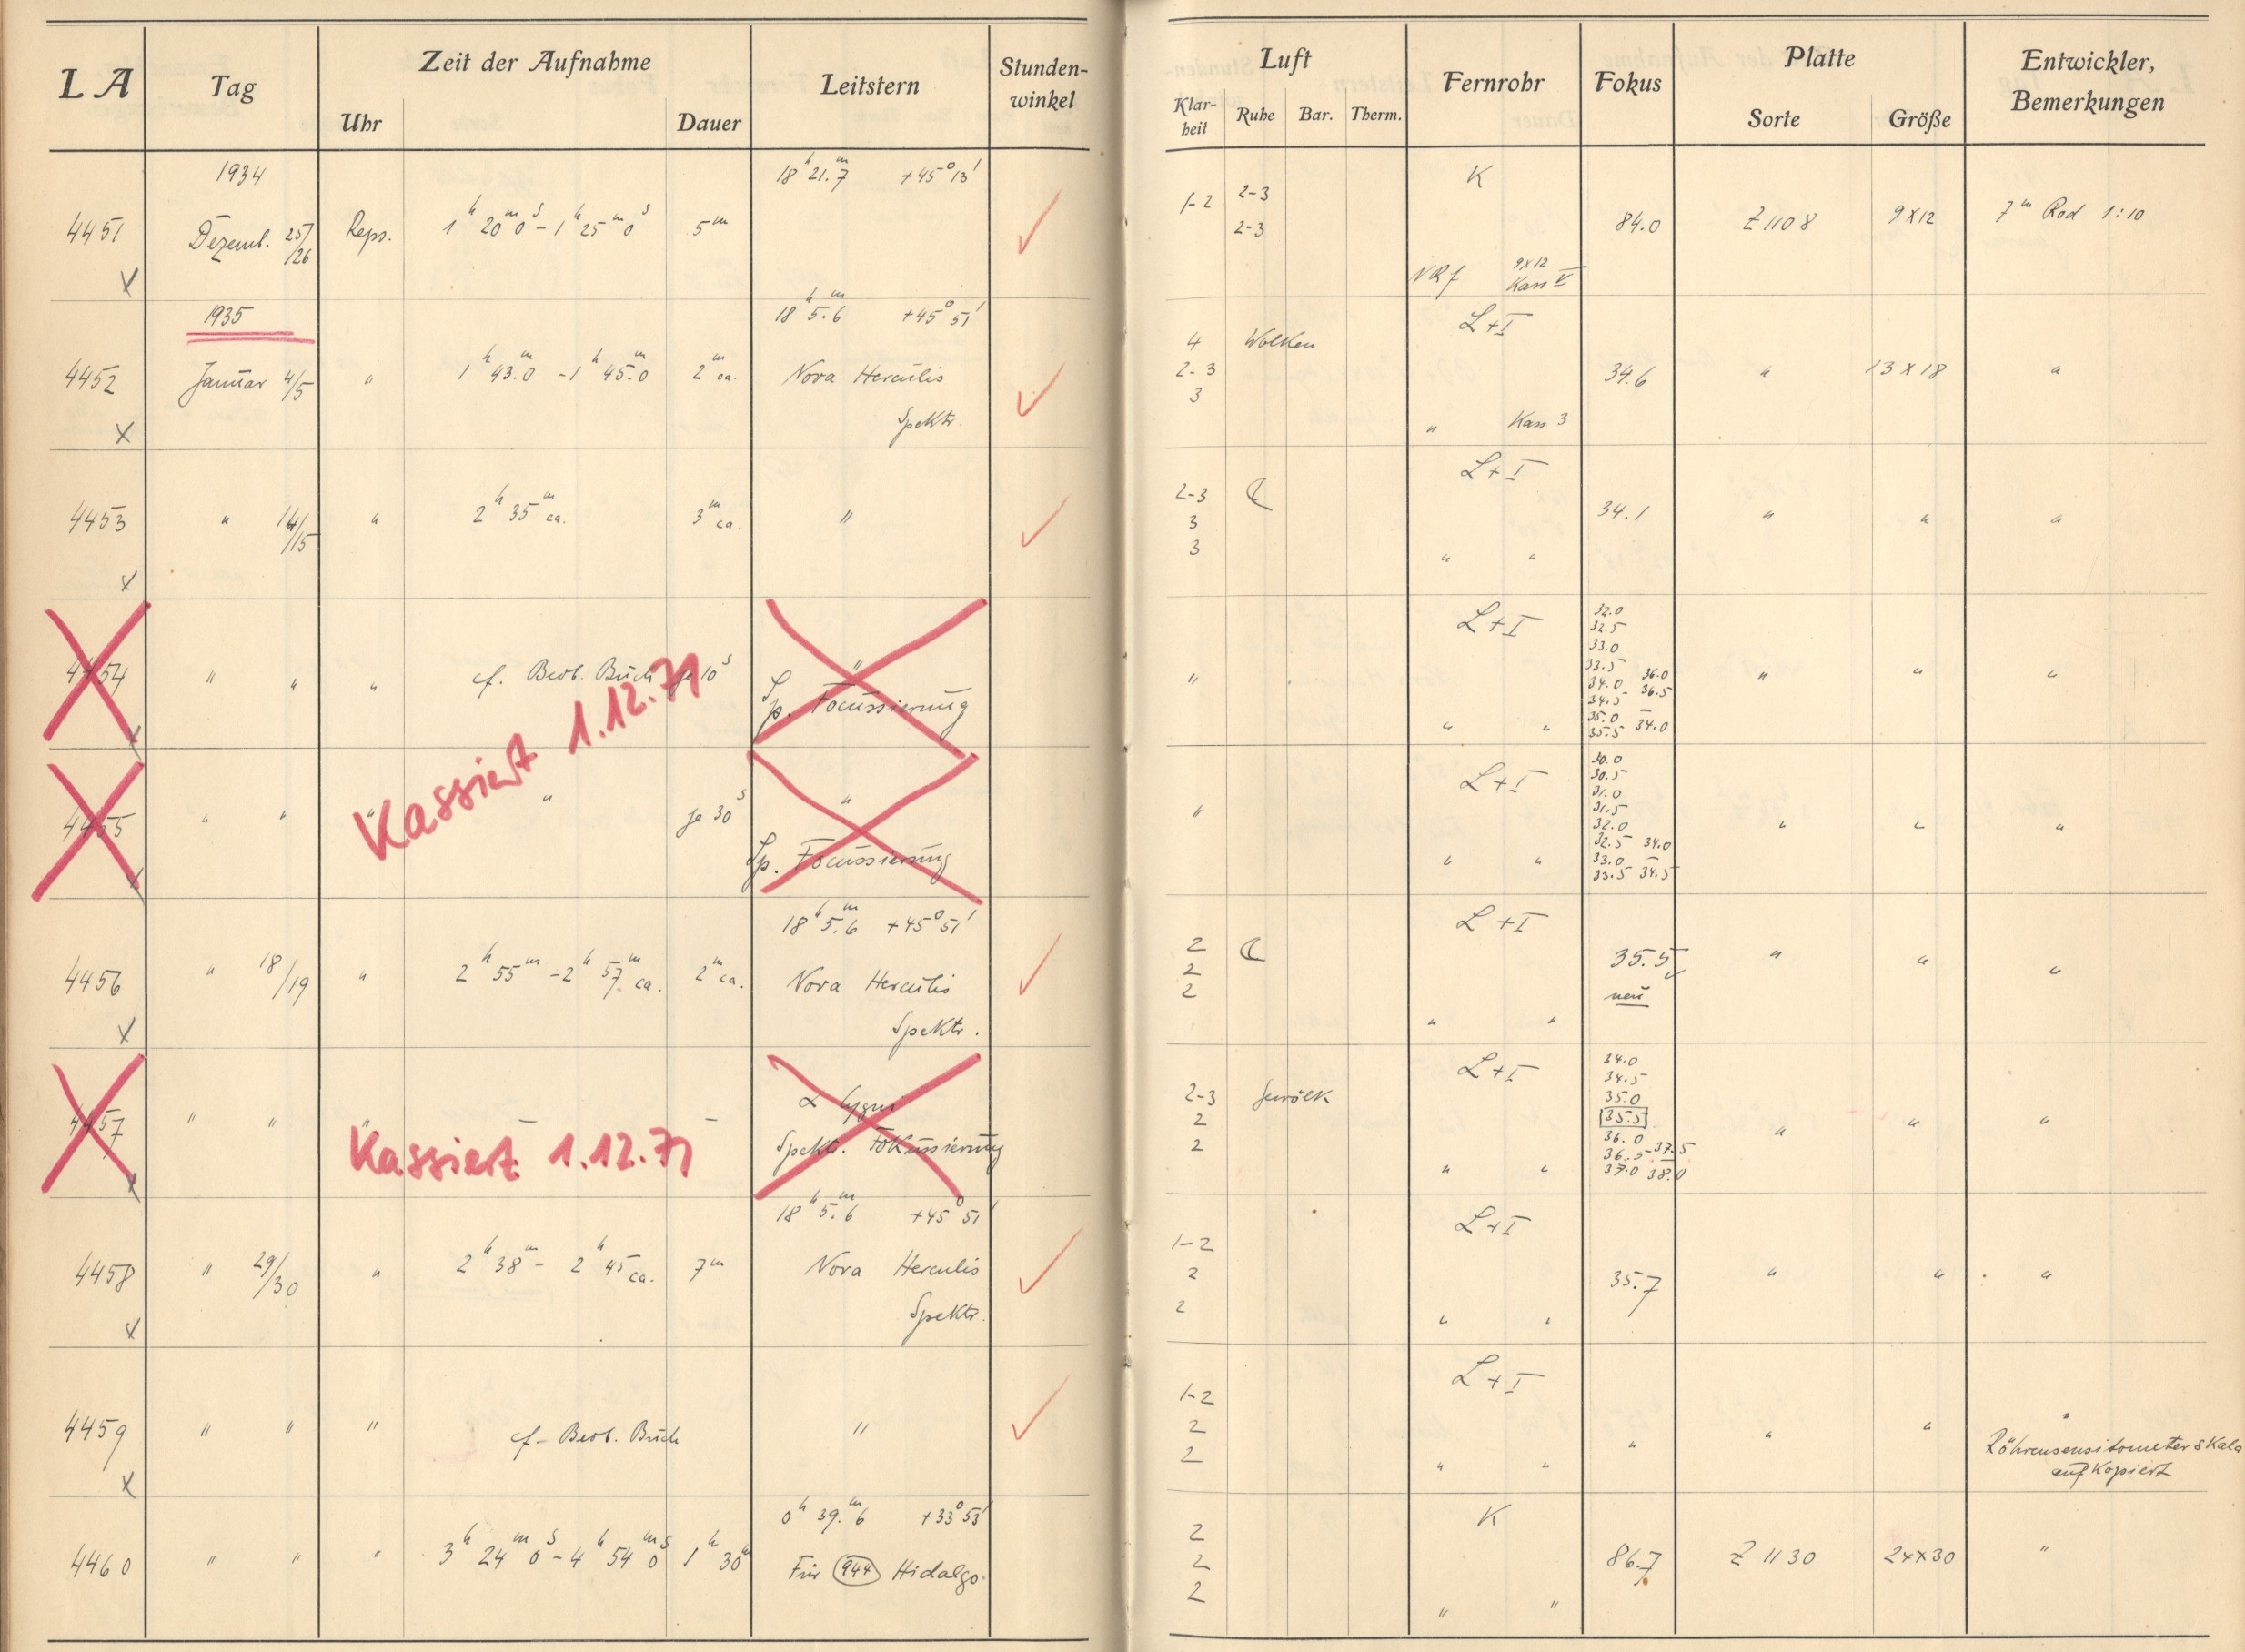 LA Tag Zeit der Aufnahme Leitstern Stunden-
winkel
Uhr Dauer
Luft Fernrohr Fokus Platte Entwickler,
Bemerkungen
Klar-
heit Ruhe Bar. Therm. Sorte Größe
1934 18h 21.m7 +45°13' K
4451 Dezemb. 25/26 Reps. 1h 20m 0s - 1h 25m 0s 5m 1-2 2-3 84.0 Z 1108 9x12 7m Rod 1:10
2-3
X NRf 9x12
Kass V
1935 18h 5.m6 +45° 51' L+I
4 Wolken
4452 Januar 4/5 " 1h 43.m0 - 1h 45.m0 2m ca. Nova Herculis 2-3 34.6 " 13x18 "
3
X Spektr. " Kass 3
L+I
2-3 ☾
4453 " 14/15 " 2h 35m ca. 3m ca. " 3 34.1 " " "
3 " "
X
L+I 32.0
32.5
33.0
33.5 36.0
4454 " " " cf. Beob. Buch je 10s " " 34.0 36.5 " " "
Sp. Focussierung 34.5 -
" " 35.0 34.0
35.5
Kassiert 1.12.71
L+I 30.0
30.5
31.0
31.5
4455 " " " " je 30s " " 32.0 " " "
32.5 34.0
Sp. Focussierung " " 33.0 -
33.5 34.5
18h 5.m6 +45° 51' L+I
2 ☾
4456 " 18/19 " 2h 55m - 2h 57m ca. 2m ca. Nova Herculis 2 35.5 " " "
2 neu
X Spektr. " "
L+I 34.0
34.5
α Cygni 2-3 Gewölk 35.0
4457 " " " - - 2 35.5 " " "
Spektr. Fokussierung 2 36.0
36.5 - 37.5
" " 37.0 38.0
Kassiert 1.12.71
18h 5.m6 +45° 51' L+I
1-2
4458 " 29/30 " 2h 38m - 2h 45 ca. 7m Nova Herculis 2 35.7 " " "
2
X Spektr. " "
L+I
1-2
4459 " " " cf. Beob. Buch " 2 " " " "
2 " " Röhrensensitometerskala
X aufkopiert
0h 39.m6 +33° 53' K
2
4460 " " " 3h 24m 0s - 4h 54m 0s 1h 30m Für 944 Hidalgo. 2 86.7 Z 1130 24x30 "
2
" "